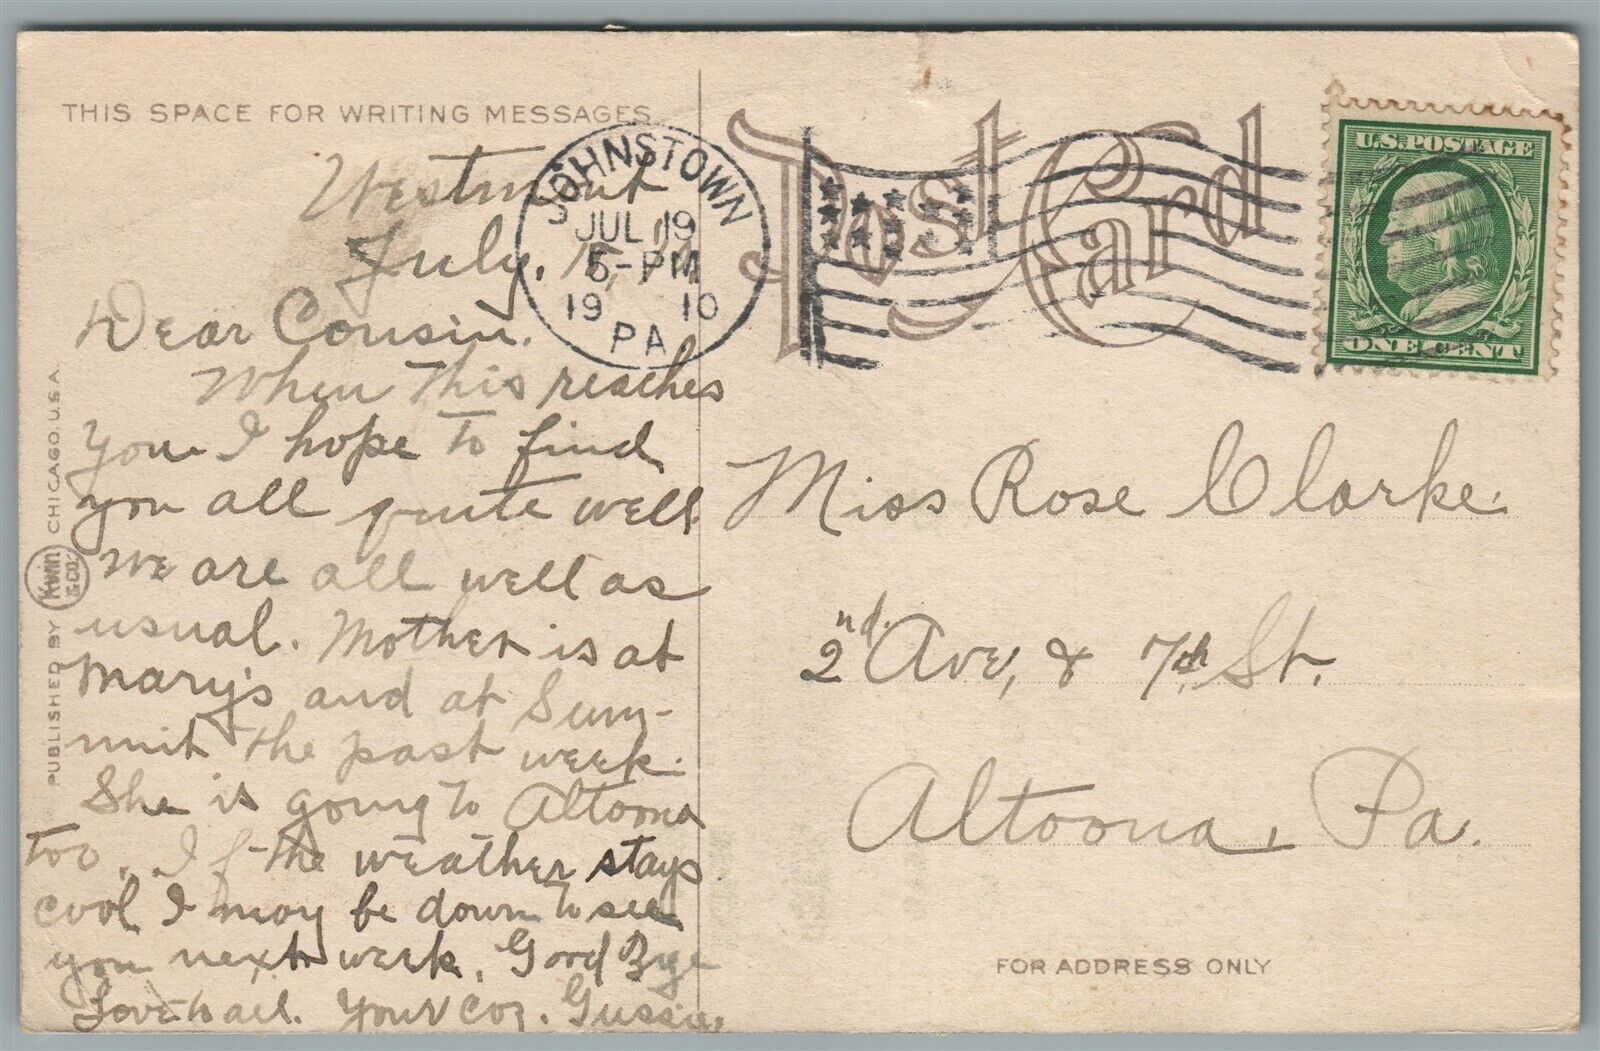 THIS SPACE FOR WRITING MESSAGES
Post Card
JOHNSTOWN
JUL 19
5-PM
1910
PA
U.S. POSTAGE
ONE CENT
Westmont
July.
Dear Cousin.
When this reaches
you I hope to find
you all quite well.
We are all well as
usual. Mother is at
Mary's and at Sum-
mit the past week.
She is going to Altoona
too. If the weather stays
cool I may be down to see
you next week. Good Bye
Love to all. Your Coz. Gussie
Miss Rose Clarke.
2nd. Ave, & 7th St.
Altoona, Pa.
FOR ADDRESS ONLY
PUBLISHED BY Kwin & Co. CHICAGO, U.S.A.